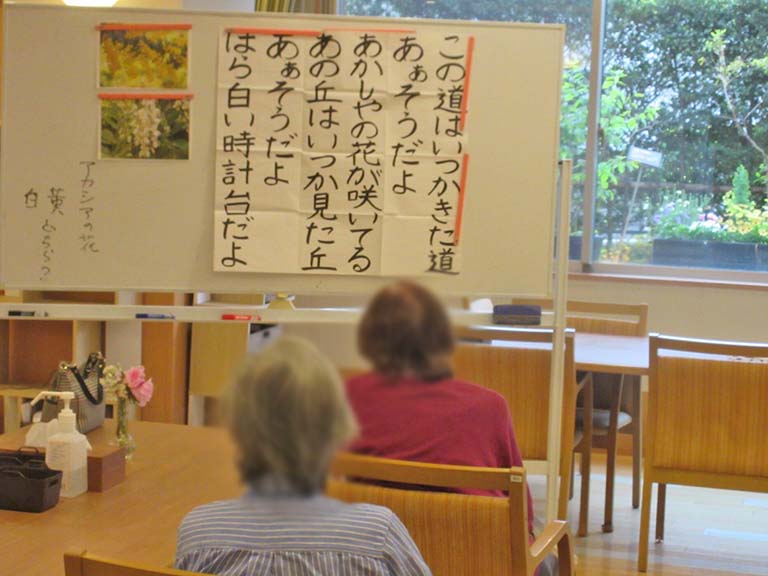 この道はいつかきた道
あぁそうだよ
あかしやの花が咲いてる
あの丘はいつか見た丘
あぁそうだよ
ほら白い時計台だよ
アカシアの花
黄 どちら?
白